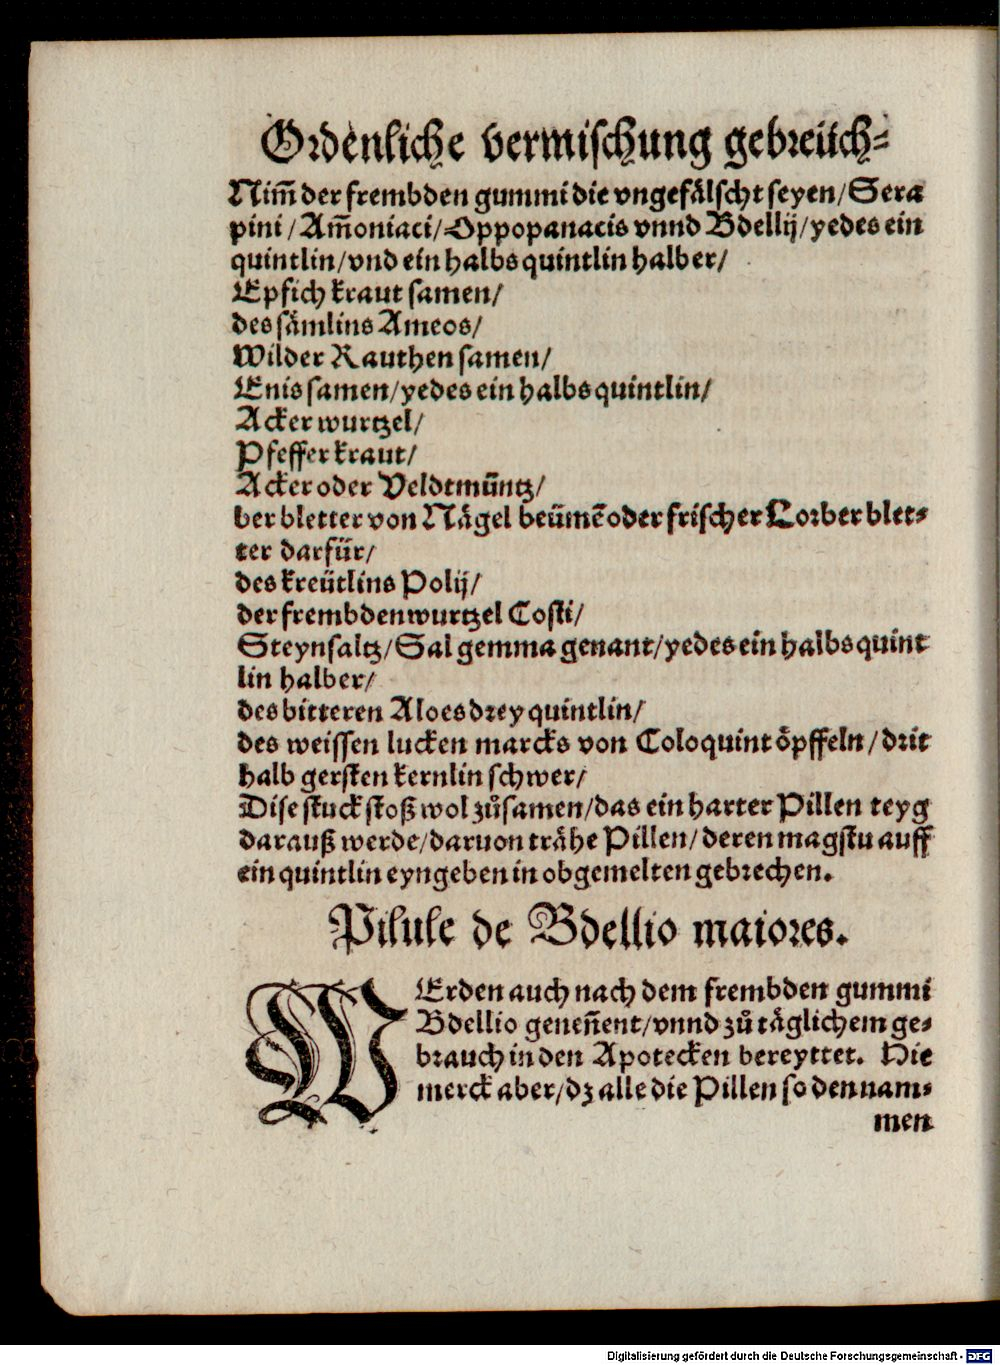 Ordenliche vermischung gebreüch⸗
Nim̃ der frembden gummi die vngefälscht seyen/Sera
pini/Am̃oniaci/Oppopanacis vnnd Bdellij/yedes ein
quintlin/vnd ein halbs quintlin halber/
Epfich kraut samen/
des sämlins Ameos/
Wilder Rauthen samen/
Enis samen/yedes ein halbs quintlin/
Acker wurtzel/
Pfefferkraut/
Acker oder Veldtmüntz/
ber bletter von Nägel beümẽ oder frischer Lorber blet⸗
ter darfür/
des kreütlins Polij/
der frembden wurtzel Costi/
Steynsaltz/Sal gemma genant/yedes ein halbs quint
lin halber/
des bitteren Aloes drey quintlin/
des weissen lucken marcks von Coloquint öpffeln/drit
halb gersten kernlin schwer/
Dise stuck stoß wol zůsamen/das ein harter Pillen teyg
darauß werde/daruon trähe Pillen/deren magstu auff
ein quintlin eyngeben in obgemelten gebrechen.
Pilule de Bdellio maiores.
WErden auch nach dem frembden gummi
Bdellio geneñent/vnnd zů täglichem ge⸗
brauch in den Apotecken bereyttet. Hie
merck aber/dz alle die Pillen so den nam⸗
men
Digitalisierung gefördert durch die Deutsche Forschungsgemeinschaft - DFG